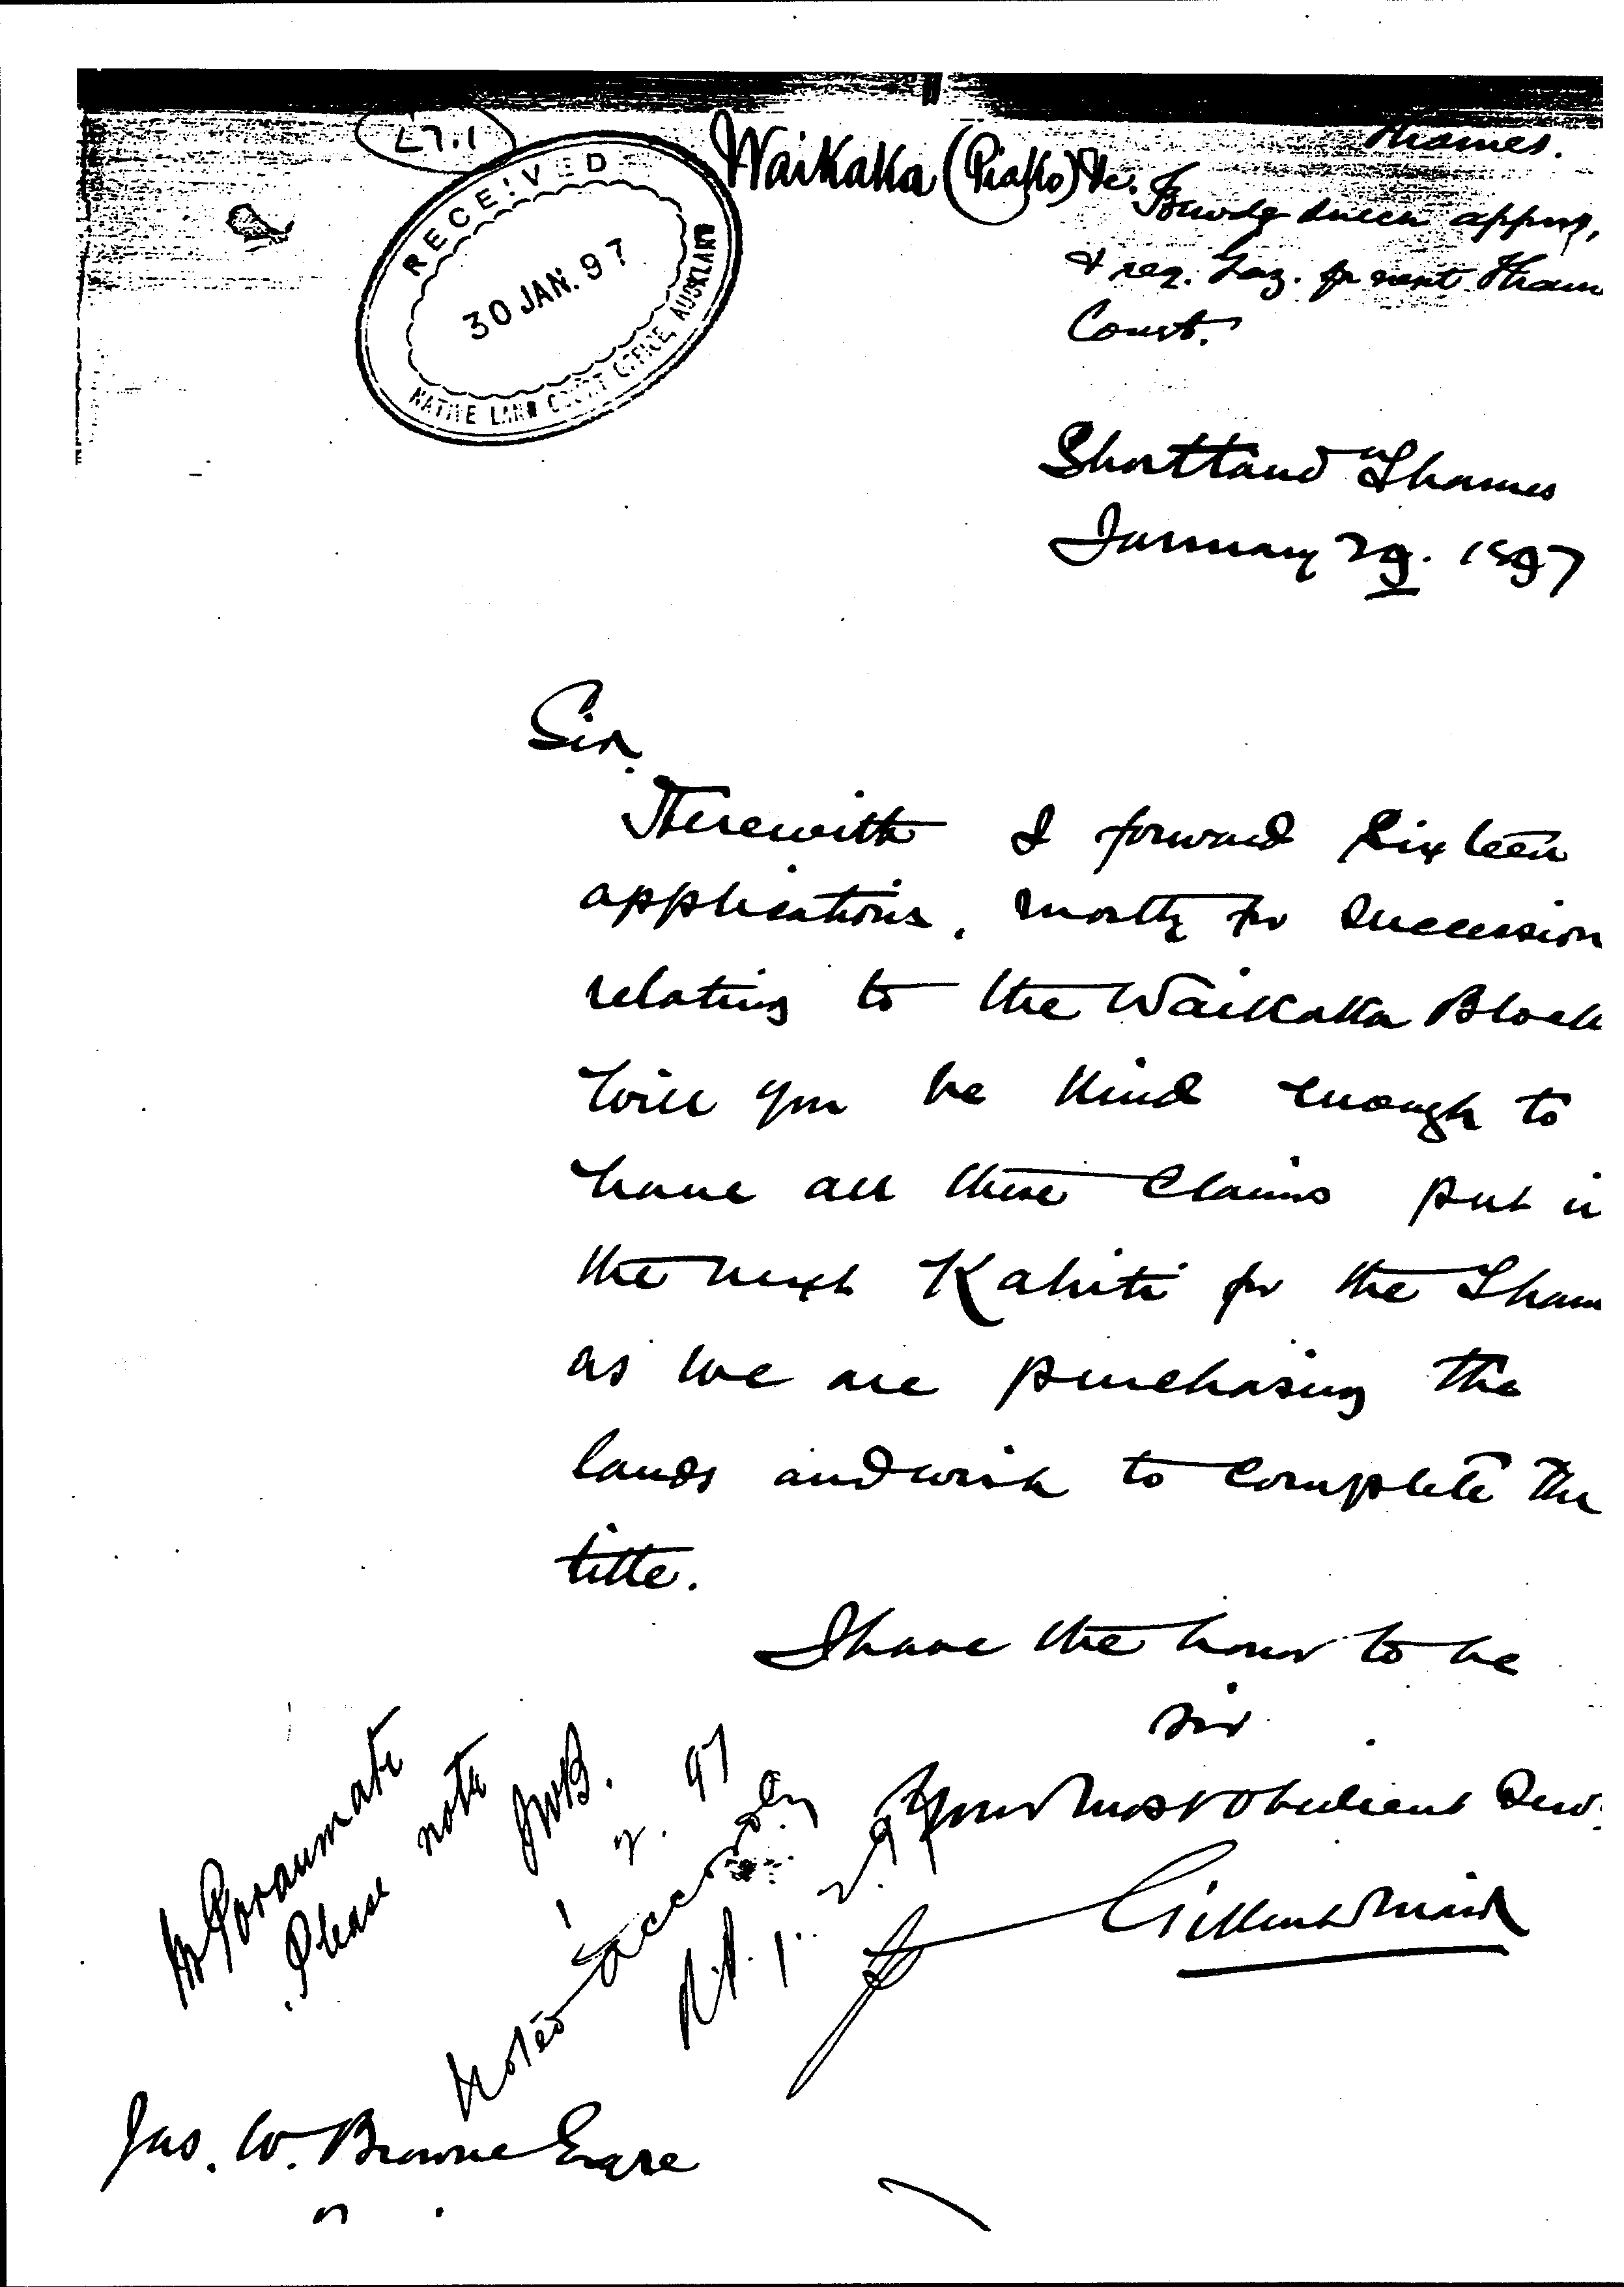 27.1
RECEIVED
30 JAN. 97
NATIVE LAND COURT OFFICE, AUCKLAND
Waikaka (Piako) &c.
Thames.
Fwdg succn appns,
& req. Gaz. for next Tham
Court.
Shortland Thames
January 29. 1897
Sir.
Herewith I forward Sixteen
applications, mostly for Succession
relating to the Waikaka Block
Will you be kind enough to
have all these Claims put in
the next Kahiti for the Tham
as we are purchasing the
lands and wish to Complete the
title.
I have the honor to be
Sir
Your most Obedient Serv.
Gilbert Mair
Mr Poraumati
Please note
JWB.
1 2. 97
Noted accordly
1. 2. 97
Jas. W. Browne Esqre